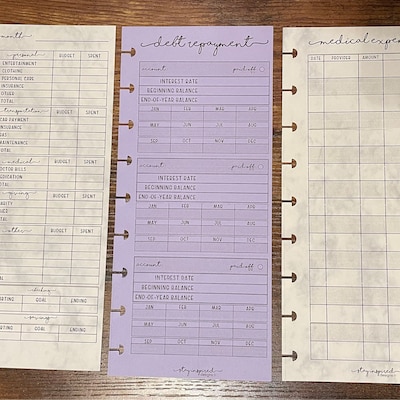 month
personal BUDGET SPENT
ENTERTAINMENT
CLOTHING
PERSONAL CARE
INSURANCE
OTHER
TOTAL
transportation BUDGET SPENT
CAR PAYMENT
INSURANCE
GAS
MAINTENANCE
TOTAL
medical BUDGET SPENT
DOCTOR BILLS
MEDICATION
TOTAL
giving BUDGET SPENT
TOTAL
other BUDGET SPENT
STARTING GOAL ENDING
savings
STARTING GOAL ENDING
debt repayment
account paid off
INTEREST RATE
BEGINNING BALANCE
END-OF-YEAR BALANCE
JAN FEB MAR APR
MAY JUN JUL AUG
SEP OCT NOV DEC
account paid off
INTEREST RATE
BEGINNING BALANCE
END-OF-YEAR BALANCE
JAN FEB MAR APR
MAY JUN JUL AUG
SEP OCT NOV DEC
account paid off
INTEREST RATE
BEGINNING BALANCE
END-OF-YEAR BALANCE
JAN FEB MAR APR
MAY JUN JUL AUG
SEP OCT NOV DEC
stay inspired
medical expen
DATE PROVIDER AMOUNT
stay inspired